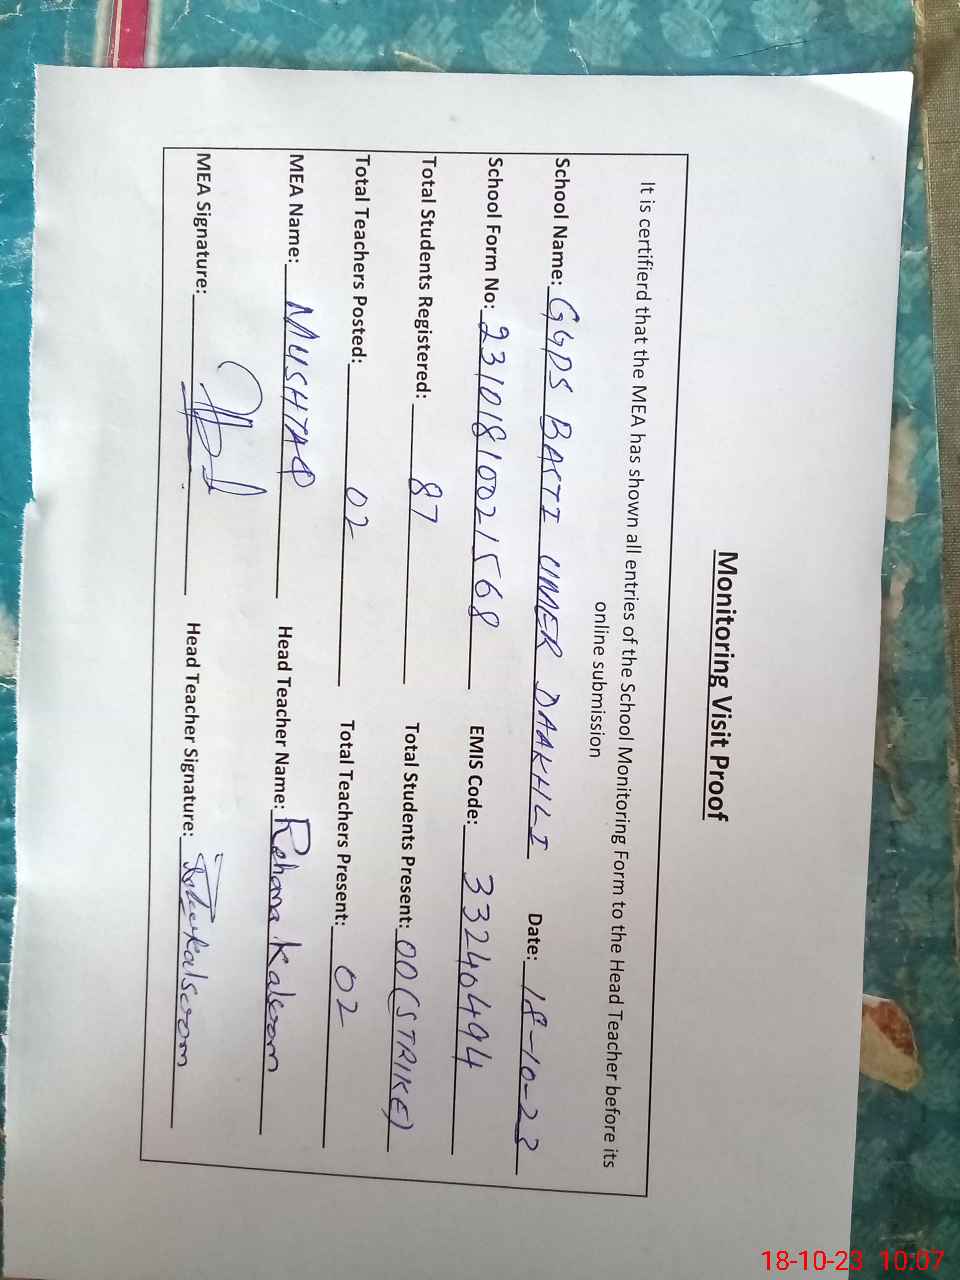 Monitoring Visit Proof
It is certifierd that the MEA has shown all entries of the School Monitoring Form to the Head Teacher before its
online submission
School Name: GGPS BASTI UMER DAAKHLI Date: 18-10-23
School Form No: 23101810021568 EMIS Code: 33240494
Total Students Registered: 87 Total Students Present: 00 (STRIKE)
Total Teachers Posted: 02 Total Teachers Present: 02
MEA Name: MUSHTAQ Head Teacher Name: Rehana Kalsoom
MEA Signature: Head Teacher Signature:
18-10-23 10:07